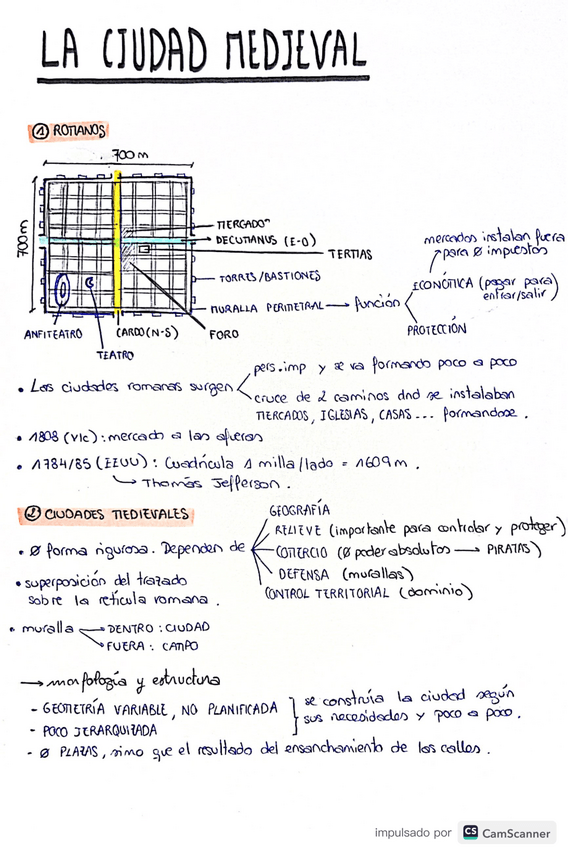 LA CIUDAD MEDIEVAL
① ROMANOS
700 m
700 m
MERCADO
DECUMANUS (E-O)
TERMAS
TORRES/BASTIONES
MURALLA PERIMETRAL → función
mercados instalan fuera
para ø impuestos
ECONÓMICA (pagar para)
entrar/salir)
PROTECCIÓN
ANFITEATRO
CARDO (N-S)
FORO
TEATRO
• Las ciudades romanas surgen
pers.imp y se va formando poco a poco
cruce de 2 caminos dnd se instalaban
MERCADOS, IGLESIAS, CASAS... formandose.
• 1808 (Vic): mercado a las afueras
• 1784/85 (EEUU): Cuadrícula 1 milla/lado = 1609 m.
→ Thomas Jefferson.
② CIUDADES MEDIEVALES
• ø forma rigurosa. Dependen de
GEOGRAFÍA
RELIEVE (importante para controlar y proteger)
COMERCIO (ø poder absolutos → PIRATAS)
DEFENSA (murallas)
CONTROL TERRITORIAL (dominio)
• superposición del trazado
sobre la retícula romana.
• muralla
DENTRO: CIUDAD
FUERA: CAMPO
→ morfología y estructura
- GEOMETRÍA VARIABLE, NO PLANIFICADA
- POCO JERARQUIZADA
se construía la ciudad según
sus necesidades y poco a poco.
- ø PLAZAS, sino que el resultado del ensanchamiento de las calles.
impulsado por CS CamScanner